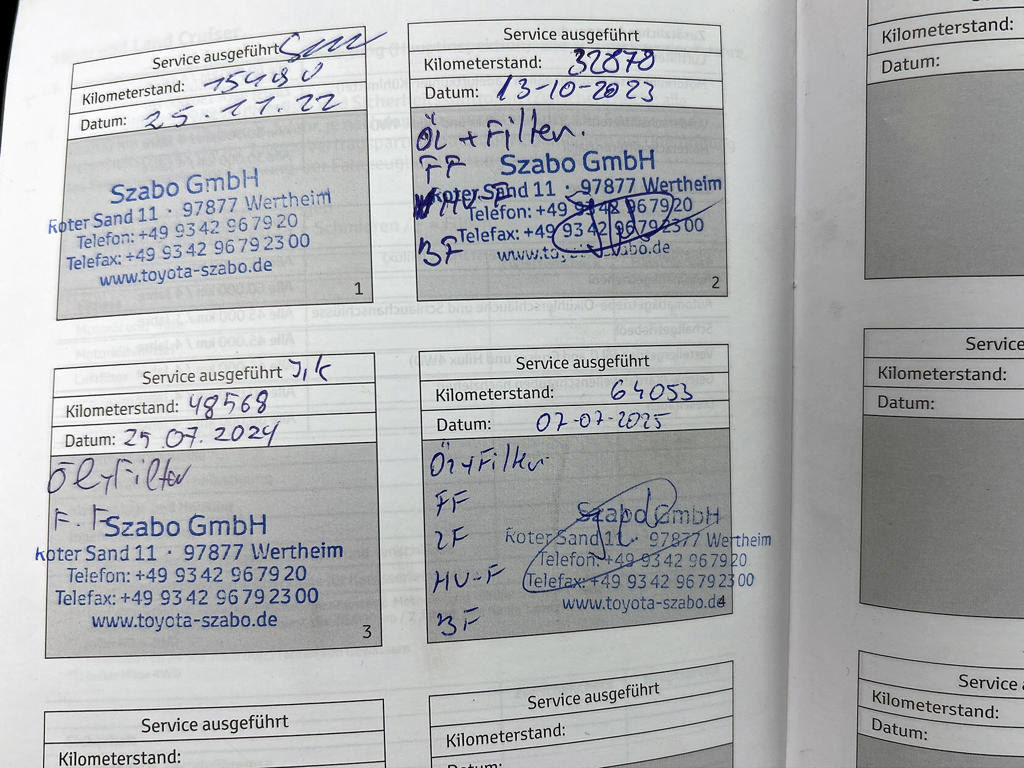 Service ausgeführt
Kilometerstand: 15490
Datum: 25.11.22
Szabo GmbH
Roter Sand 11 · 97877 Wertheim
Telefon: +49 93 42 96 79 20
Telefax: +49 93 42 96 79 23 00
www.toyota-szabo.de
1
Service ausgeführt
Kilometerstand: 32870
Datum: 13-10-2023
Öl + Filter.
FF
Szabo GmbH
Roter Sand 11 · 97877 Wertheim
HU-F
Telefon: +49 93 42 96 79 20
Telefax: +49 93 42 96 79 23 00
BF
www.toyota-szabo.de
2
Service ausgeführt
Kilometerstand: 48568
Datum: 25 07. 2024
Öl + Filter
F. F
Szabo GmbH
Roter Sand 11 · 97877 Wertheim
Telefon: +49 93 42 96 79 20
Telefax: +49 93 42 96 79 23 00
www.toyota-szabo.de
3
Service ausgeführt
Kilometerstand: 64053
Datum: 07-07-2025
Öl + Filter
FF
Szabo GmbH
2F
Roter Sand 11 · 97877 Wertheim
Telefon: +49 93 42 96 79 20
HU-F
Telefax: +49 93 42 96 79 23 00
www.toyota-szabo.de
4
BF
Service ausgeführt
Kilometerstand:
Service ausgeführt
Kilometerstand:
Datum:
Kilometerstand:
Datum:
Service
Kilometerstand:
Datum:
Service
Kilometerstand:
Datum: